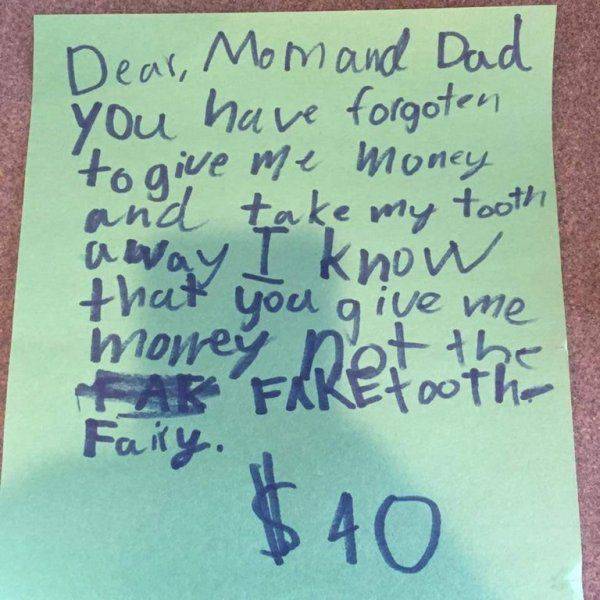 Dear, Mom and Dad
you have forgoten
to give me money
and take my tooth
away I know
that you give me
money not the
FAK FAKE tooth
Fairy.
$40